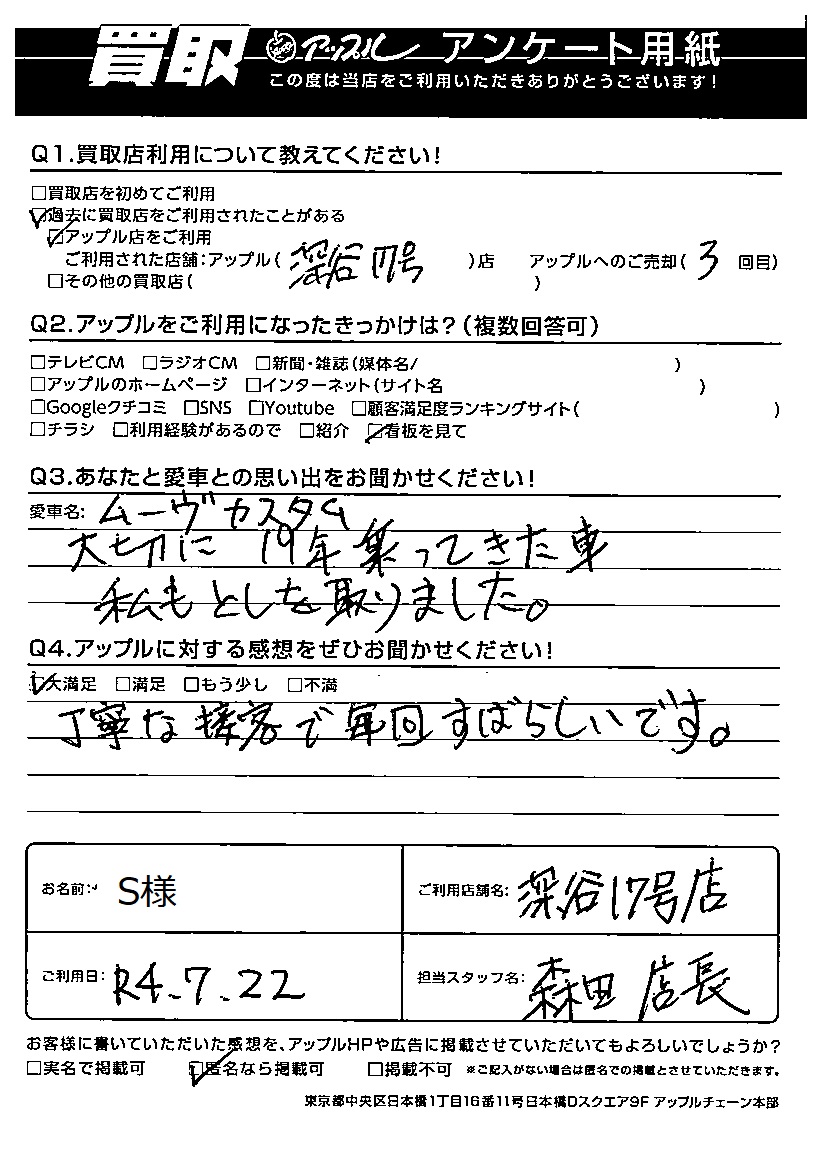 買取 アップル アンケート用紙
この度は当店をご利用いただきありがとうございます！
Q1.買取店利用について教えてください！
□買取店を初めてご利用
☑過去に買取店をご利用されたことがある
☑アップル店をご利用
ご利用された店舗：アップル（ 深谷17号 ）店 アップルへのご売却（ 3 回目）
□その他の買取店（ ）
Q2.アップルをご利用になったきっかけは？（複数回答可）
□テレビCM □ラジオCM □新聞・雑誌（媒体名/ ）
□アップルのホームページ □インターネット（サイト名 ）
□Googleクチコミ □SNS □Youtube □顧客満足度ランキングサイト（ ）
□チラシ □利用経験があるので □紹介 ☑看板を見て
Q3.あなたと愛車との思い出をお聞かせください！
愛車名： ムーヴカスタム
大切に 19年乗ってきた車
私もとしを取りました。
Q4.アップルに対する感想をぜひお聞かせください！
☑大満足 □満足 □もう少し □不満
丁寧な接客で毎回すばらしいです。
お名前： S様 ご利用店舗名： 深谷17号店
ご利用日： R4.7.22 担当スタッフ名： 森田 店長
お客様に書いていただいた感想を、アップルHPや広告に掲載させていただいてもよろしいでしょうか？
□実名で掲載可 ☑匿名なら掲載可 □掲載不可 ※ご記入がない場合は匿名での掲載とさせていただきます。
東京都中央区日本橋1丁目16番11号日本橋Dスクエア9F アップルチェーン本部